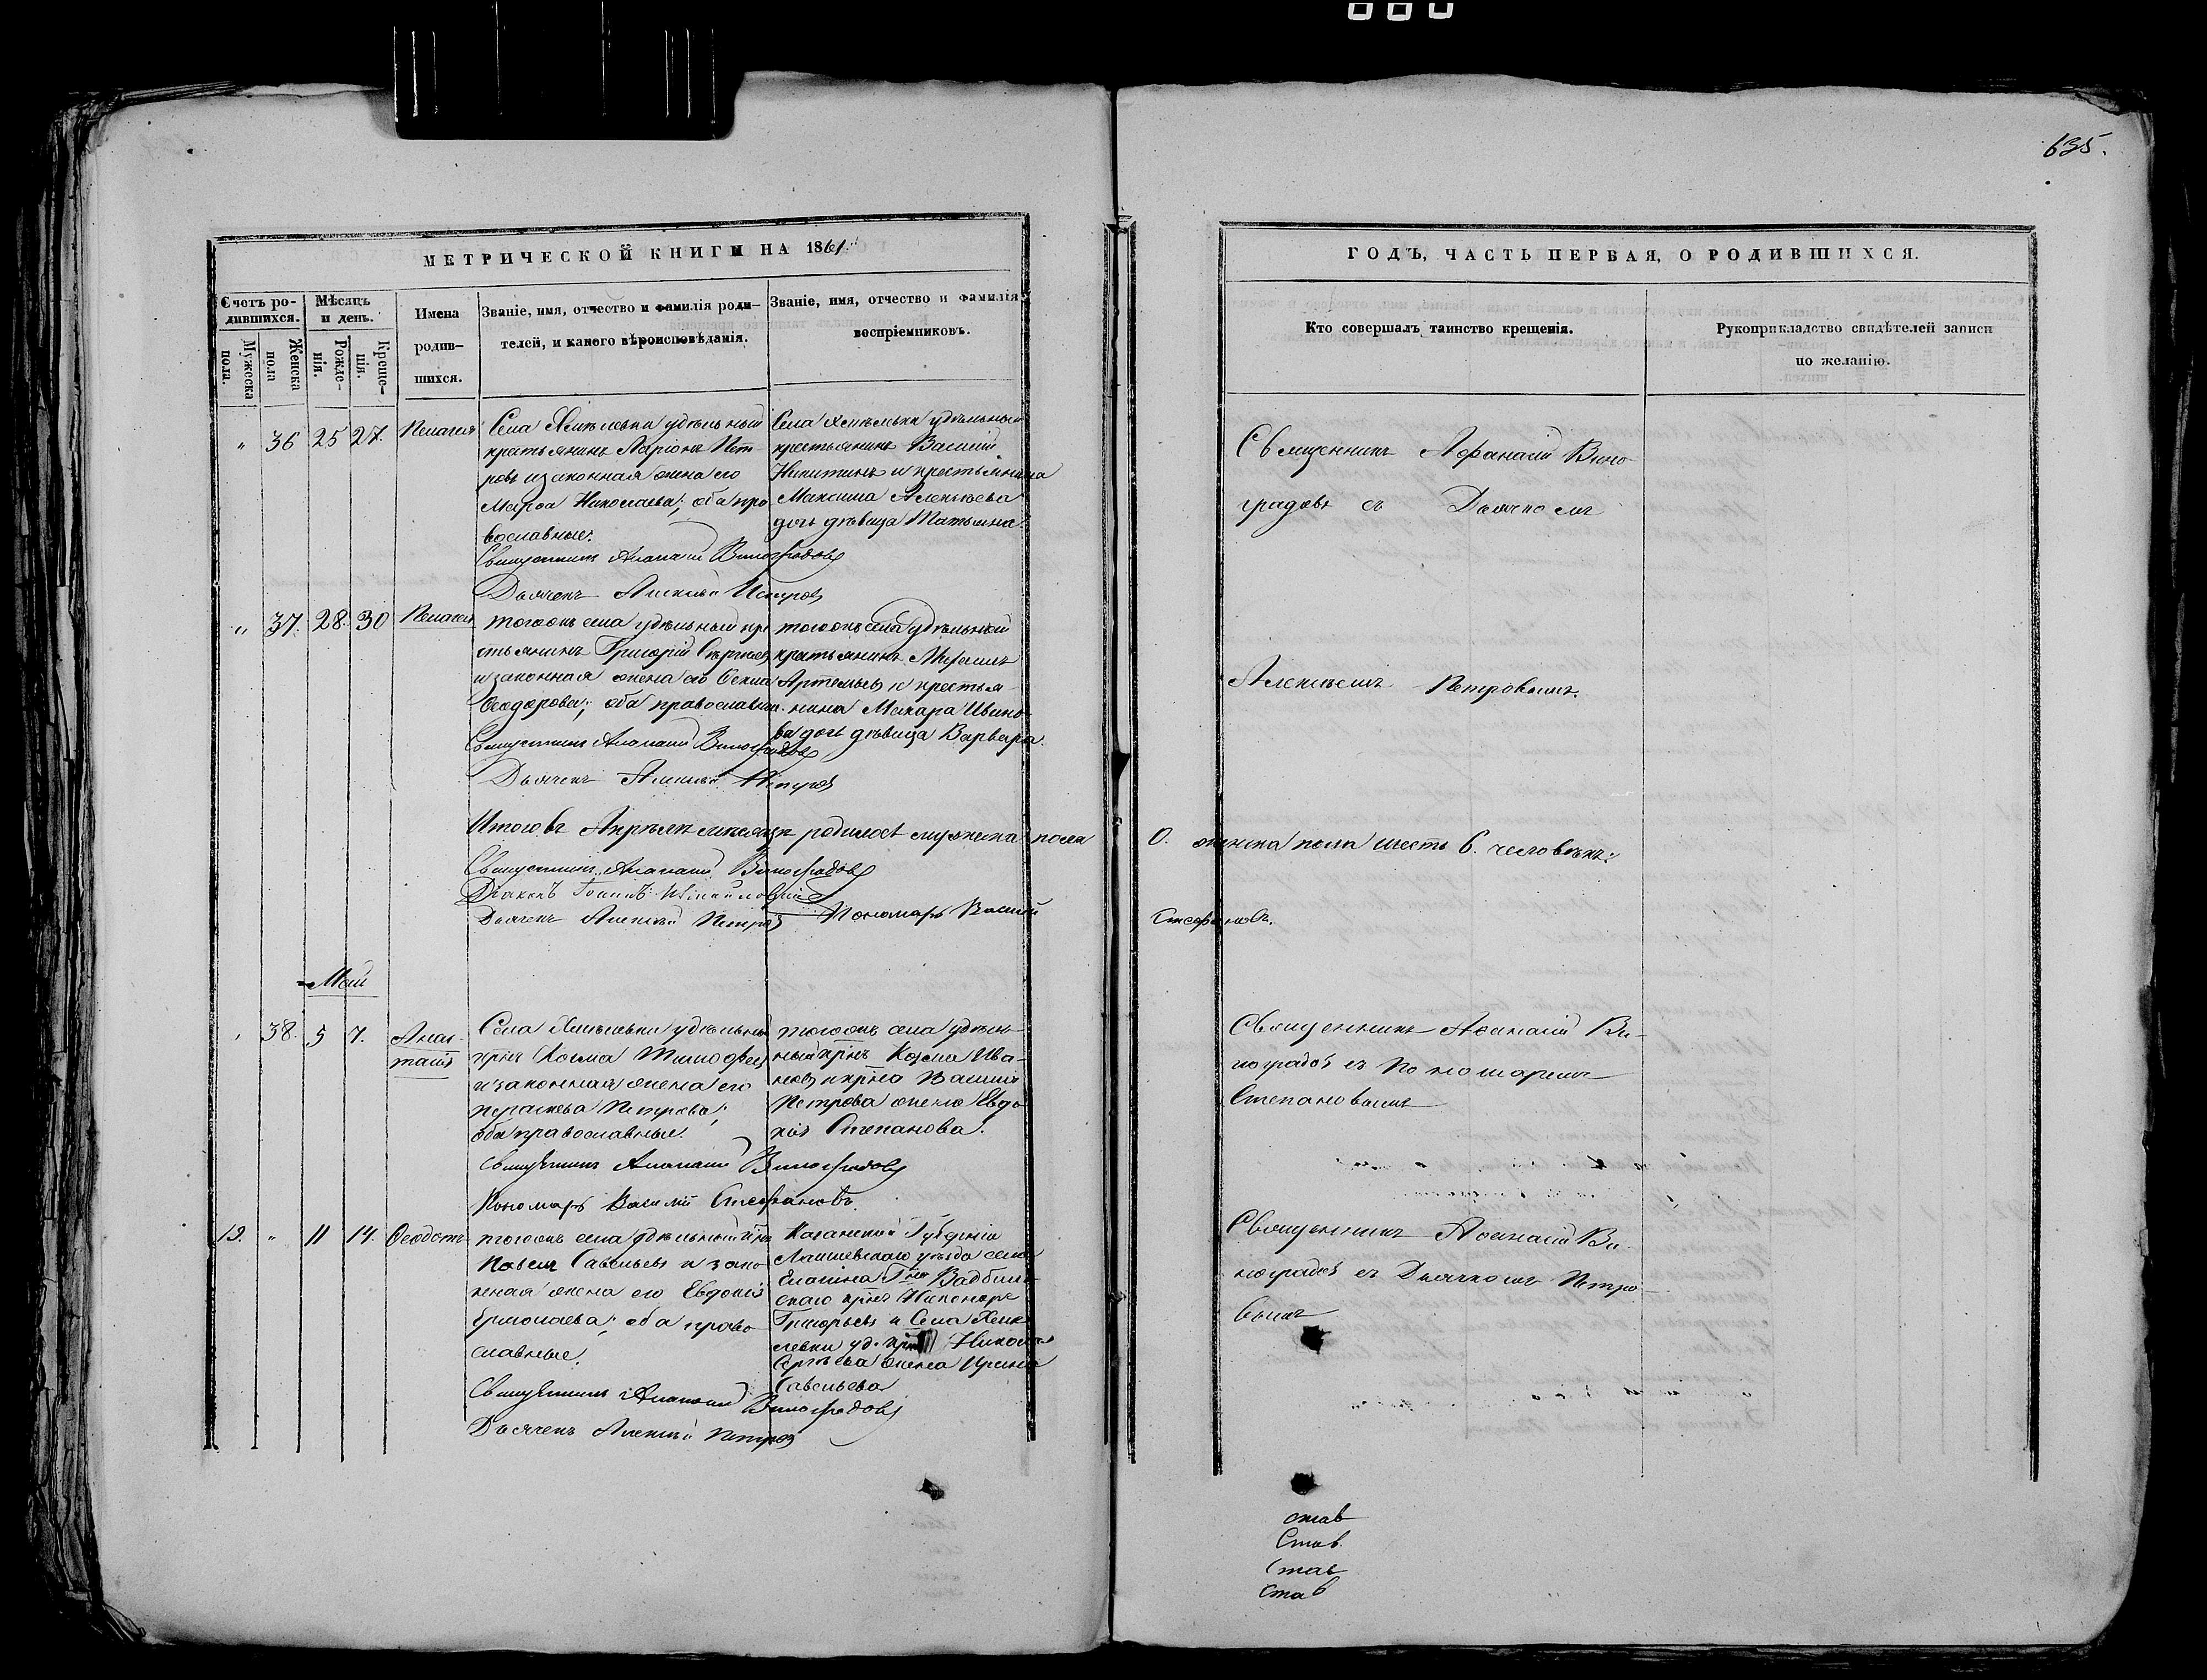 635.
МЕТРИЧЕСКОЙ КНИГИ НА 1861
Счетъ ро-
дившихся.
Мужеска
пола.
Женска
пола
Мѣсяцъ
и день.
Рожде-
нія.
Креще-
нія.
Имена
родив-
шихся.
Званіе, имя, отчество и фамилія роди-
телей, и какого вѣроисповѣданія.
Званіе, имя, отчество и фамилія
воспріемниковъ.
„ 36 25 27. Пелагея
Села удѣльный
крестьянинъ Ларіонъ Пет-
ровъ и законная жена его
Марѳа Николаева; оба пра
вославные.
Священникъ Аѳанасій Виноградовъ
Дьячекъ Алексѣй Петровъ
Села удѣльный
крестьянинъ Василій
Никитинъ и крестьянина
Максима Алексѣева
дочь дѣвица Татьяна.
„ 37. 28. 30 Пелагея
тогожъ села удѣльный кре
стьянинъ Григорій Сергѣевъ
и законная жена его
Ѳеодорова; оба православные.
Священникъ Аѳанасій Виноградовъ
Дьячекъ Алексѣй Петровъ
тогожъ села удѣльный
крестьянинъ
Артемьевъ и крестья-
нина Макара Ивано-
ва дочь дѣвица Варвара.
Итого въ Апрѣлѣ мѣсяцѣ родилось мужеска пола
0. женска пола шесть 6. человѣкъ.
Священникъ Аѳанасій Виноградовъ
Діаконъ Іоаннъ
Дьячекъ Алексѣй Петровъ
Пономарь Василій
Стефановъ.
Май
„ 38. 5 7. Анас-
тасія
Села удѣльный
крнъ Козма Тимофеевъ
и законная жена его
Петрова;
оба православные.
Священникъ Аѳанасій Виноградовъ
Пономарь Василій Стефановъ.
тогожъ села удѣль-
ный крнъ Козма Ива-
новъ и крна Василія
Петрова жена Евдо-
кія Степанова.
13. „ 11 14. Ѳеодотъ
тогожъ села удѣльный крнъ
Павелъ Савельевъ и зако
нная жена его Евдокія
Ермолаева; оба право-
славные.
Священникъ Аѳанасій Виноградовъ
Дьячекъ Алексѣй Петровъ
Казанской Губерніи
Лаишевскаго уѣзда села
скаго крнъ Никоноръ
Григорьевъ и Села
уд. Николая
Сергѣева жена Ирина
Савельева
ГОДЪ, ЧАСТЬ ПЕРВАЯ, О РОДИВШИХСЯ.
Кто совершалъ таинство крещенія.
Рукоприкладство свидѣтелей записи
по желанію.
Священникъ Афанасій Вино-
градовъ съ Дьячкомъ
Алексѣемъ Петровымъ.
Священникъ Аѳанасій Ви-
ноградовъ съ Пономаремъ
Степановымъ
Священникъ Аѳанасій Ви-
ноградовъ съ Дьячкомъ Петро-
вымъ
став
Став.
став
став